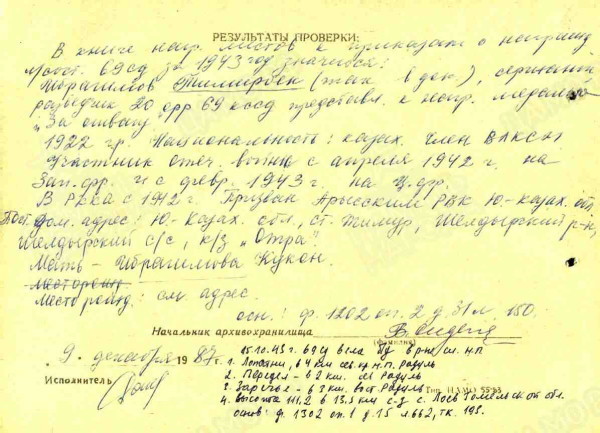 РЕЗУЛЬТАТЫ ПРОВЕРКИ:
В книге нагр. листов к приказам о награжд.
69 сд за 1943 год значится:
Ибрагимов Тимирбек (так в док.), сержант
разведчик 20 орр 69 ксд представл. к нагр. медалью
"За отвагу"
1922 г.р. Национальность: казах. Член ВЛКСМ
Участник отеч. войны с апреля 1942 г. на
Зап. фр. и с февр. 1943 г. на Ц. фр.
В РККА с 1942 г. Призван Арысским РВК Ю-Казах. обл.
Пост. дом. адрес: Ю-Казах. обл., ст. Тимур, Шелдырский р-н,
Шелдырский с/с, к/з "Отра".
Мать - Ибрагимова Кукон.
Место рожд.: см. адрес.
осн: ф. 1202 оп. 2 д. 31 л. 150.
Начальник архивохранилища
(фамилия)
9. декабря 1987 г.
Исполнитель
15.10.43 г. 69 сд вела бд в р-не сл. н.п.
1. Лопатни, 4 км сев. н.п. Радуль
2. Передел - 2 км Радуль
3. Заречье - 6,2 км вост. Радуль
4. высота 111,2 в 13,5 км с-з с. Лоев Гомельской обл.
основ: ф. 1302 оп. 1 д. 15 л. 662, тк. 195.
Тип. ЦАМО